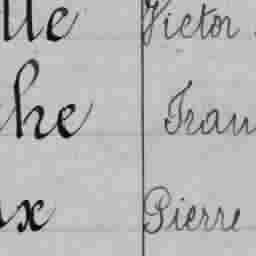 lle Victor
he Fran
x Pierre